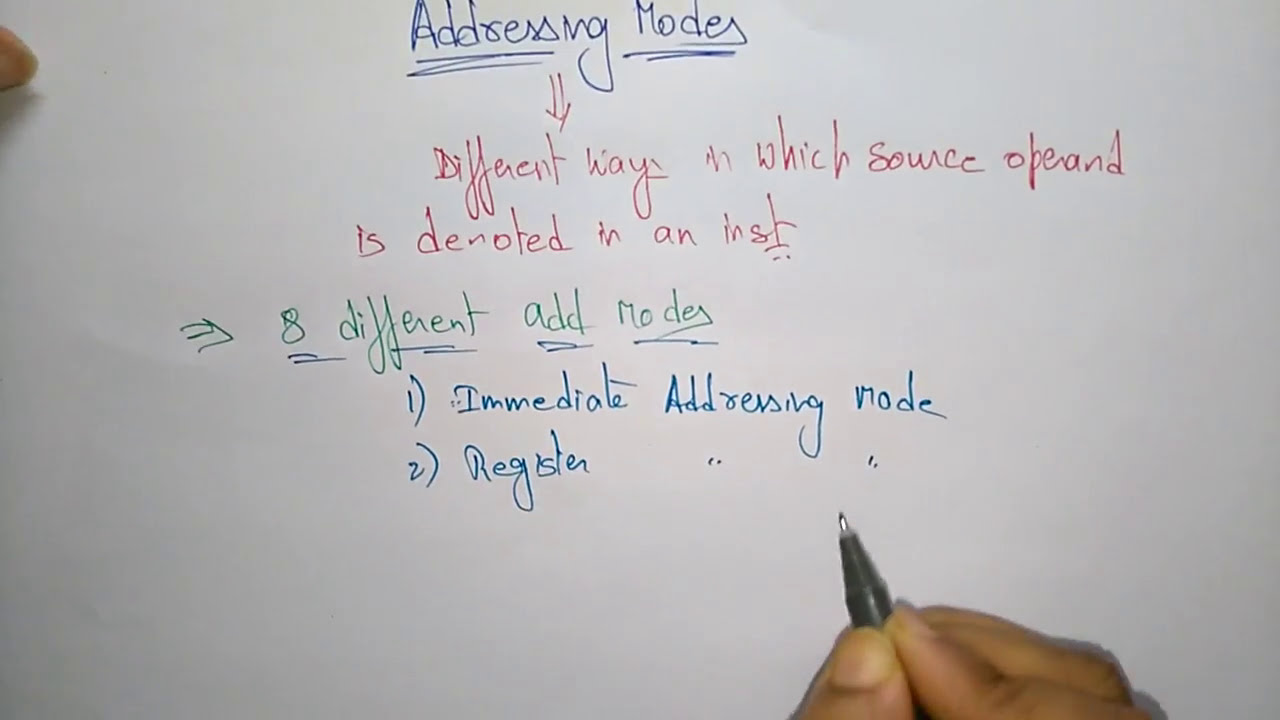 Addressing Modes
⇓
Different ways in which source operand
is denoted in an inst
⇒ 8 different add modes
1) Immediate Addressing mode
2) Register " "